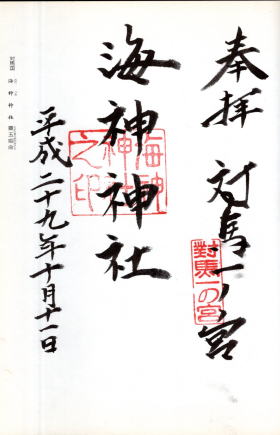 奉拝 対馬一ノ宮
對馬一の宮
海神神社
海神神社之印
平成二十九年十月十一日
対馬国 海神神社